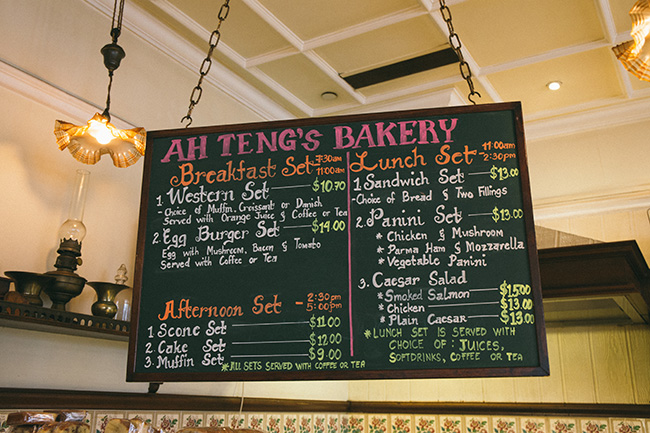 AH TENG'S BAKERY
Breakfast Set 7:30am
11:00am
1. Western Set $10.70
- Choice of Muffin, Croissant or Danish
Served with Orange Juice & Coffee or Tea
2. Egg Burger Set $14.00
Egg with Mushroom, Bacon & Tomato
Served with Coffee or Tea
Afternoon Set - 2:30pm
5:00pm
1 Scone Set $11.00
2. Cake Set $12.00
3. Muffin Set $9.00
* All sets served with coffee or tea
Lunch Set 11:00am
- 2:30pm
1. Sandwich Set $13.00
- Choice of Bread & Two Fillings
2. Panini Set $13.00
* Chicken & Mushroom
* Parma Ham & Mozzarella
* Vegetable Panini
3. Caesar Salad
* Smoked Salmon $15.00
* Chicken $13.00
* Plain Caesar $13.00
* Lunch set is served with
choice of: juices,
softdrinks, coffee or tea